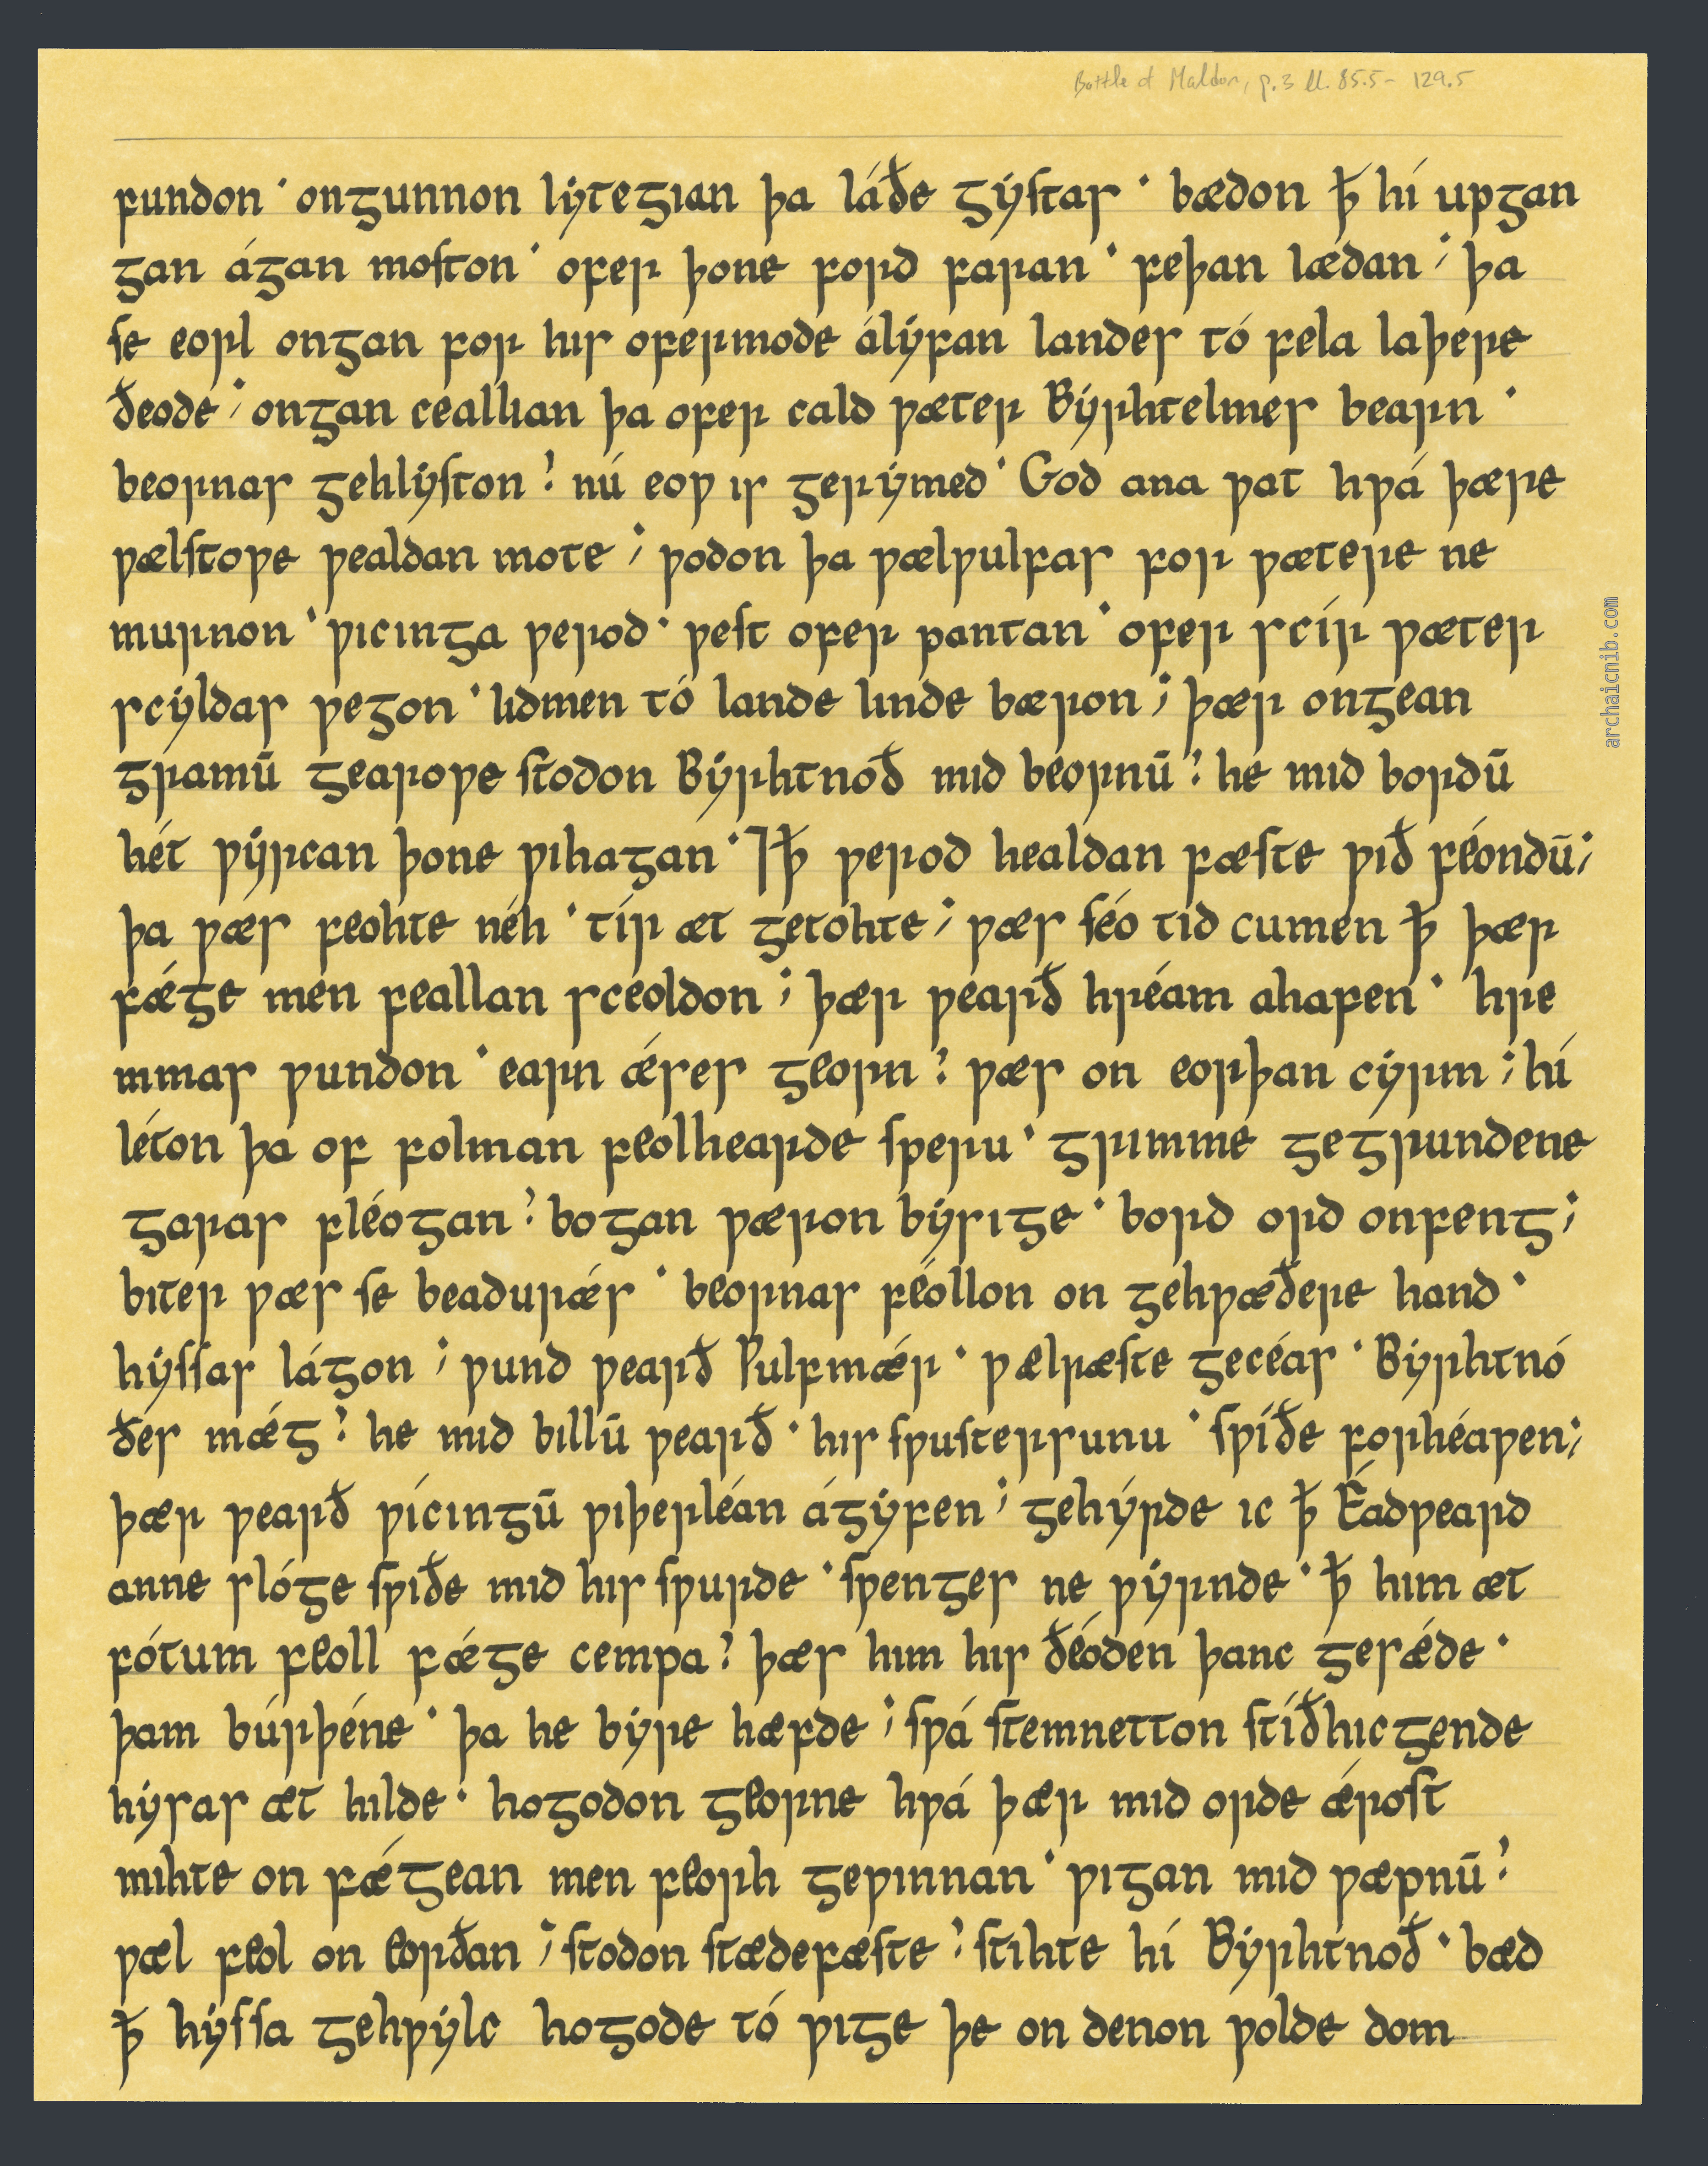 Battle of Maldon, p.3 ll. 85.5 – 129.5
fundon · ongunnon lytegian þa láðe gystas · bædon ꝥ hí upgan
gan ágan moſton · ofer þone ford faran · feþan lædan ; þa
ſe eorl ongan for his ofermode álýfan landes tó fela laþere
ðeode ; ongan ceallian þa ofer cald ƿæter Byrhtelmes bearn ·
beornas gehlyſton ⹎ nú eoƿ is gerýmed · God ana ƿat hƿá þære
ƿælſtoƿe ƿealdan mote ; ƿodon þa ƿælƿulfas for ƿætere ne
murnon · ƿicinga ƿerod · ƿeſt ofer pantan · ofer scír ƿæter
scyldas ƿegon · lidmen tó lande linde bæron ; þær ongean
gramū gearoƿe ſtodon Byrhtnoð mid beornū ⹎ he mid bordū
hét ƿyrcan þone ƿihagan · ⁊ꝥ ƿerod healdan fæſte ƿið féondū ;
þa ƿæs feohte néh · tír æt getohte ; ƿæs ſéo tid cumen ꝥ þær
fǽge men feallan sceoldon ; þær ƿearð hréam ahafen · hre
mmas ƿundon · earn ǽses georn ⹎ ƿæs on eorþan cyrm ; hí
léton þa of folman feolhearde ſperu · grimme gegrundene
garas fléogan ⹎ bogan ƿæron bysige · bord ord onfeng ;
biter ƿæs ſe beadurǽs · beornas féollon on gehƿæðere hand ·
hyſſas lágon ; ƿund ƿearð Ƿulfmǽr · ƿælræſte gecéas · Byrhtnó
ðes mǽg ⹎ he mid billū ƿearð · his ſƿuſtersunu · ſƿíðe forhéaƿen ;
þær ƿearð ƿícingū ƿiþerléan ágyfen ; gehýrde ic ꝥ Éadƿeard
anne slóge ſƿiðe mid his ſƿurde · ſƿenges ne ƿyrnde · ꝥ him æt
fótum feoll fǽge cempa ⹎ þæs him his ðéoden þanc gesǽde ·
þam búrþéne · þa he byre hæfde ; ſƿá ſtemnetton ſtíðhicgende
hysas æt hilde · hogodon georne hƿá þær mid orde ǽroſt
mihte on fǽgean men feorh geƿinnan · ƿigan mid ƿæpnū ⹎
ƿæl feol on eorðan ; ſtodon ſtædefæſte ⹎ ſtihte hí Byrhtnoð · bæd
ꝥ hyſſa gehƿylc hogode tó ƿige þe on denon ƿolde dom
archaicnib.com